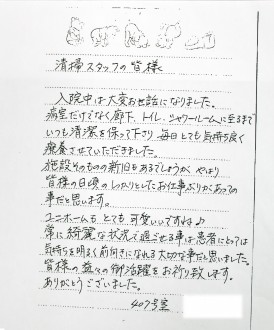 清掃スタッフの皆様
入院中は大変お世話になりました。
病室だけでなく廊下、トイレ、シャワールームに至るまで
いつも清潔を保って下さり毎日とても気持ち良く
療養させていただきました。
施設そのものの新旧もあるでしょうが、やはり
皆様の日頃のしっかりとしたお仕事ぶりがあっての
事だと思います。
ユニホームもとても可愛いですね♪
常に綺麗な状況で過ごせる事は患者にとっては
気持ちを明るく前向きになれる大切な事だと思いました。
皆様の益々の御活躍をお祈り致します。
ありがとうございました。
407号室